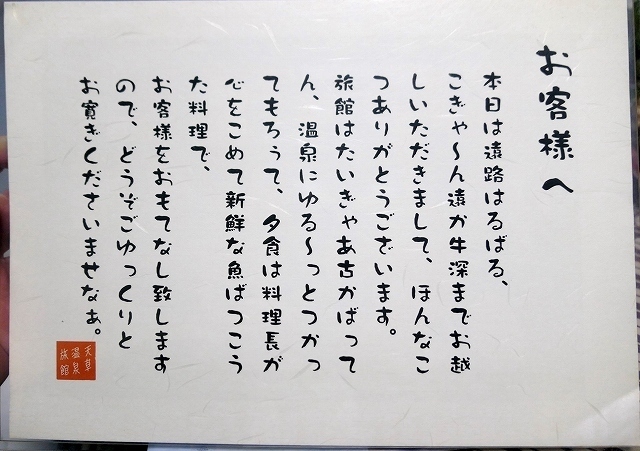 お客様へ
本日は遠路はるばる、
こぎゃ～ん遠か牛深までお越
しいただきまして、ほんなこ
つありがとうございます。
旅館はたいぎゃあ古かばって
ん、温泉にゆる～っとつかっ
てもろうて、夕食は料理長が
心をこめて新鮮な魚ばつこう
た料理で、
お客様をおもてなし致します
ので、どうぞごゆっくりと
お寛ぎくださいませなぁ。
天草
温泉
旅館